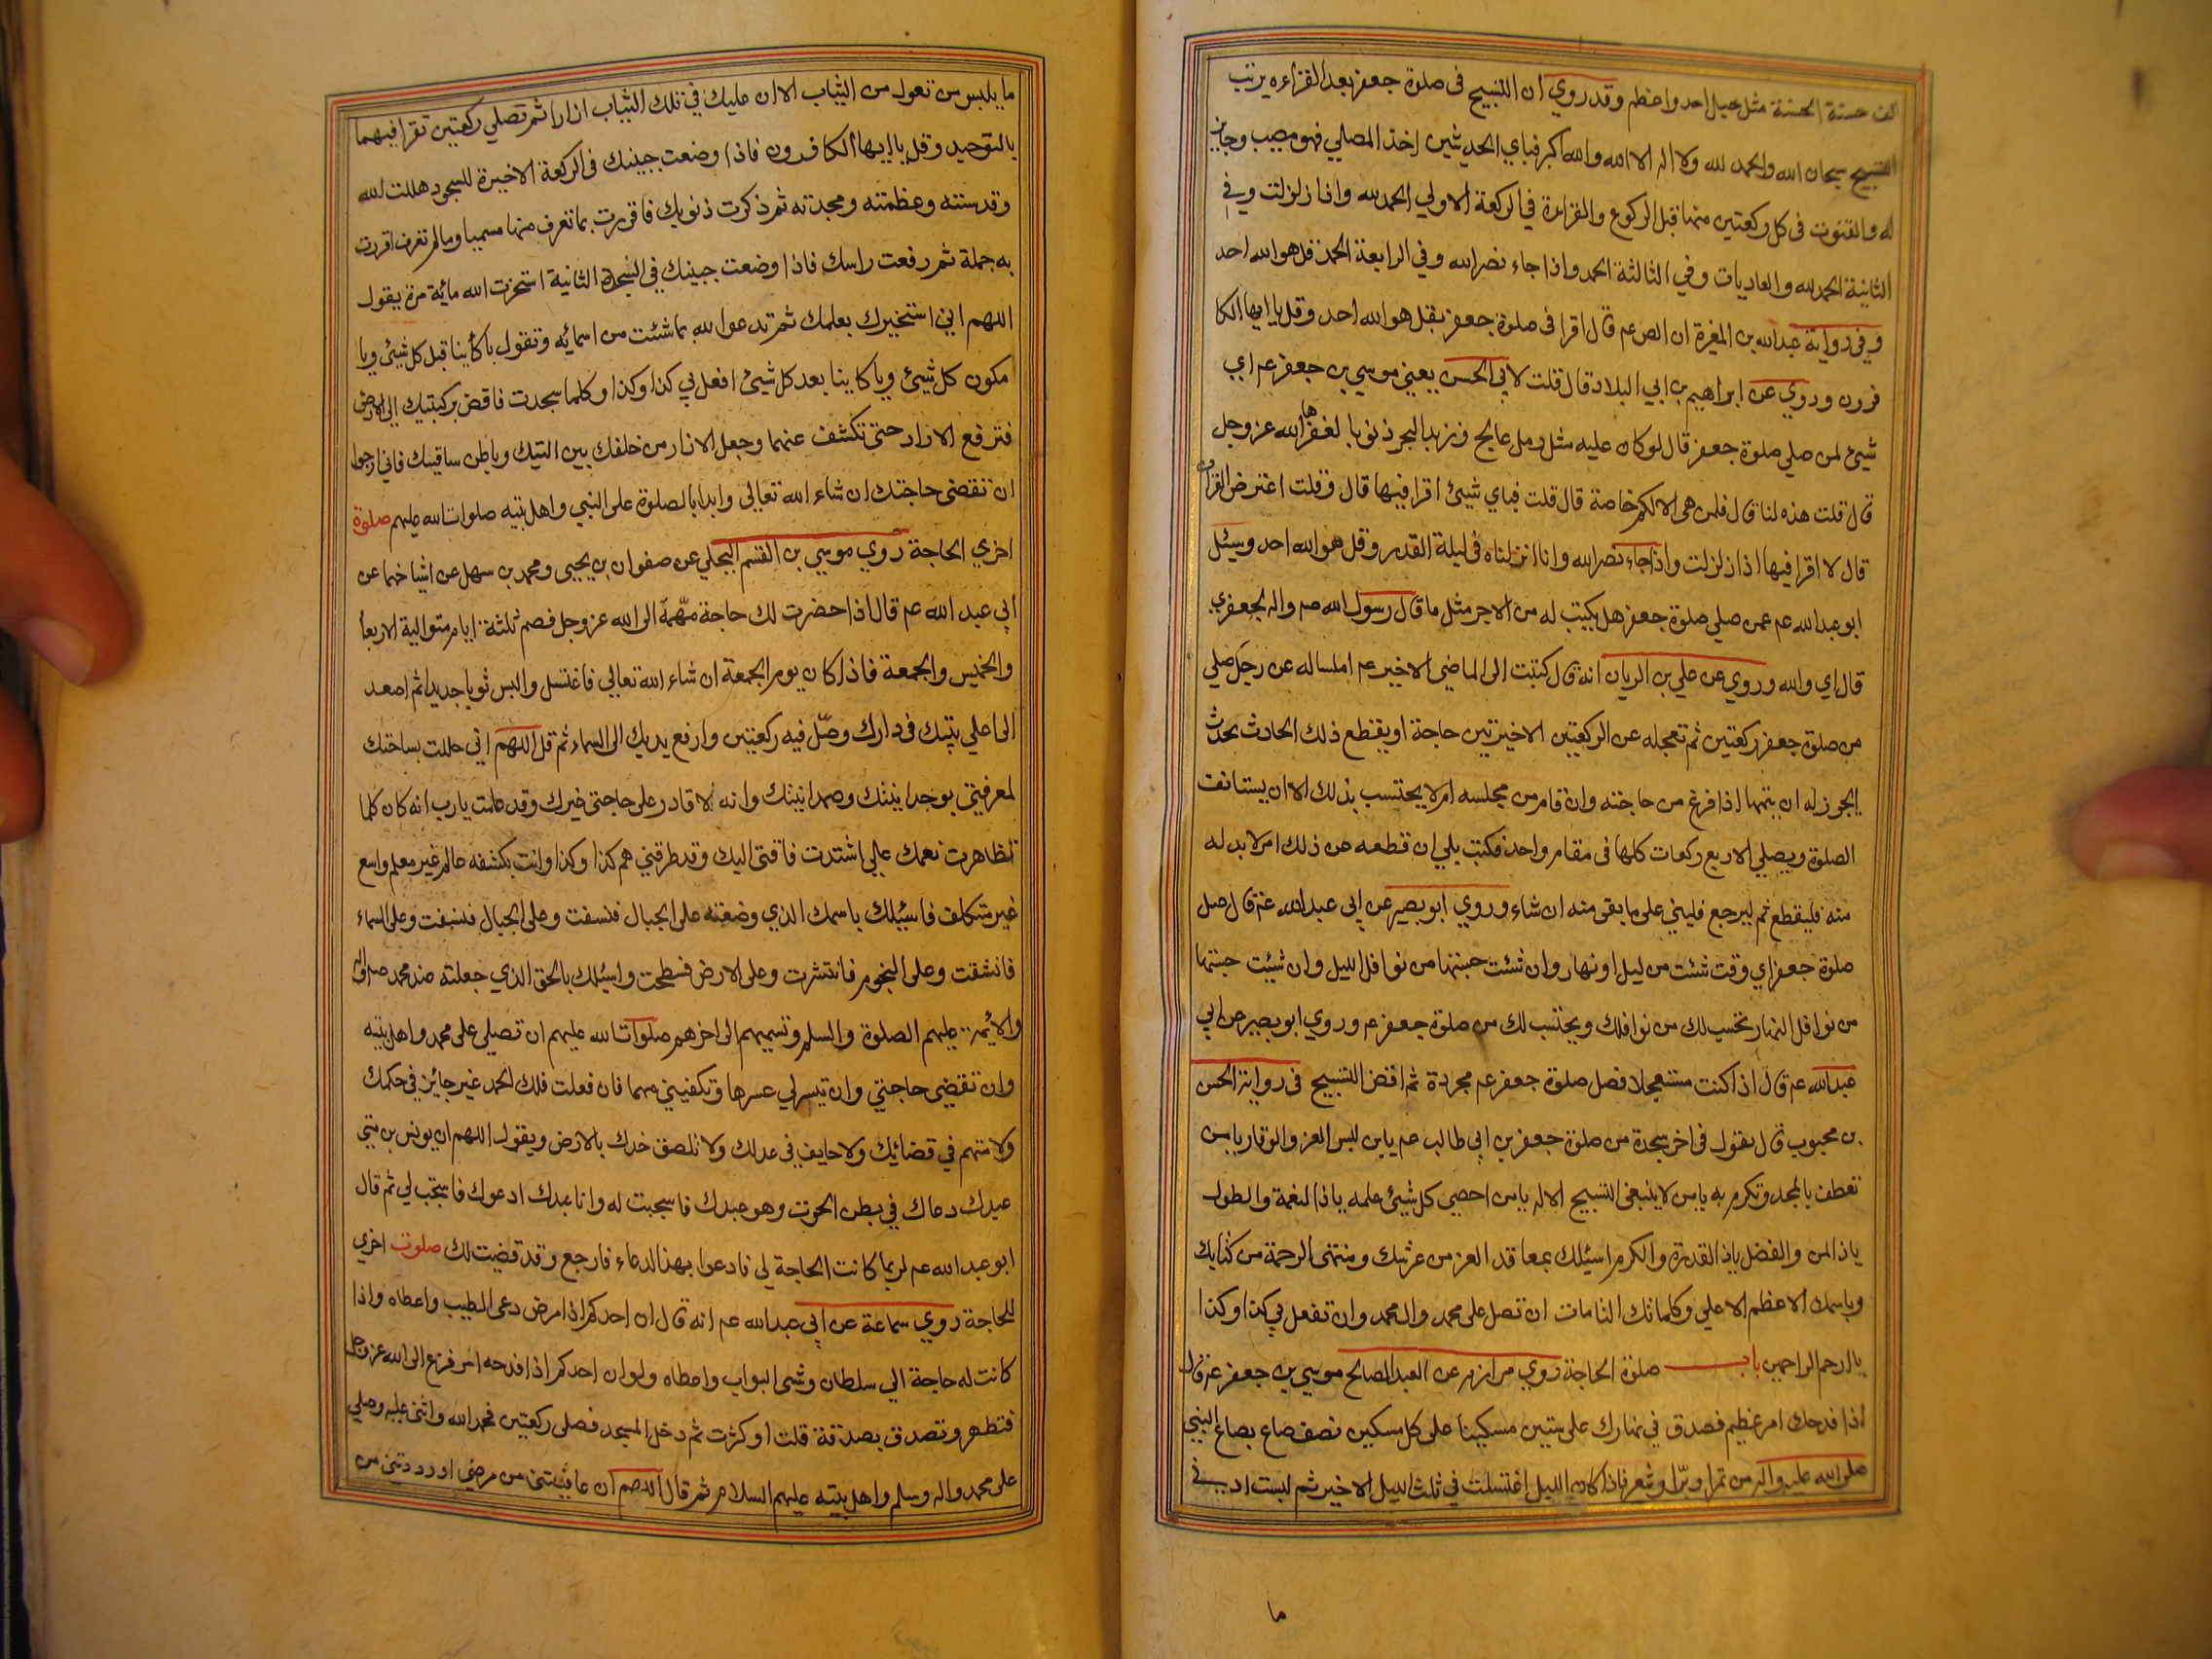 الف حسنة الحسنة مثل جبل احد واعظم وقد روي ان التسبيح في صلوة جعفر بعد القراءه يرتب
التسبيح سبحان الله والحمد لله ولا اله الا الله والله اكبر فباي الحديثين اخذ المصلي فهو مصيب وجايز
له والقنوت في كل ركعتين منها قبل الركوع والقراءة في الركعة الاولي الحمد لله واذا زلزلت وفي
الثانية الحمد لله والعاديات وفي الثالثة الحمد واذا جاء نصر الله وفي الرابعة الحمد قل هو الله احد
وفي رواية عبد الله بن المغيرة ان الص عم قال اقرا في صلوة جعفر بقل هو الله احد وقل يا ايها الكا
فرون وروي عن ابراهيم بن ابي البلاد قال قلت لابي الحسن يعني موسي بن جعفر عم اي
شيئ لمن صلي صلوة جعفر قال لو كان عليه مثل رمل عالج وزبد البحر ذنوبا لغفرها الله عز وجل
قال قلت هذه لنا قال فلمن هي الا لكم خاصة قال قلت فباي شيئ اقرا فيها قال وقلت اعترض القران
قال لا اقرا فيها اذا زلزلت واذا جاء نصر الله وانا انزلناه في ليلة القدر وقل هو الله احد وسئل
ابو عبد الله عم عمن صلي صلوة جعفر هل يكتب له من الاجر مثل ما قال رسول الله صم واله لجعفري
قال اي والله وروي عن علي بن الريان انه قال كتبت الى الماضي الاخير عم اساله عن رجل صلي
من صلوة جعفر ركعتين ثم تعجله عن الركعتين الاخيرتين حاجة او يقطع ذلك الحادث يحدث
ايجوز له ان يتمها اذا فرغ من حاجته وان قام من مجلسه ام لا يحتسب بذلك الا ان يستانف
الصلوة ويصلي الاربع ركعات كلها في مقام واحد فكتب بلي ان قطعه عن ذلك امر لا بد له
منه فليقطع ثم ليرجع فليبني على ما بقى منه ان شاء وروي ابو بصير عن ابي عبد الله عم قال صل
صلوة جعفر اي وقت شئت من ليل او نهار وان شئت حسبتها من نوافل الليل وان شئت حسبتها
من نوافل النهار تحسب لك من نوافلك ويحتسب لك من صلوة جعفر عم وروي ابو بصير عن ابي
عبد الله عم قال اذا كنت مستعجلا فصل صلوة جعفر عم مجردة ثم اقض التسبيح في رواية الحسن
بن محبوب قال يقول في اخر سجدة من صلوة جعفر بن ابي طالب عم يا من لبس العز والوقار يا من
تعطف بالمجد وتكرم به يا من لا ينبغي التسبيح الا له يا من احصي كل شيئ علمه يا ذا النعمة والطول
يا ذا المن والفضل يا ذا القدرة والكرم اسئلك بمعاقد العز من عرشك ومنتهى الرحمة من كتابك
وباسمك الاعظم الاعلي وكلماتك التامات ان تصل على محمد وال محمد وان تفعل بي كذا وكذا
يا ارحم الراحمين باب صلوة الحاجة روي مرازم عن العبد الصالح موسي بن جعفر عم قال
اذا فدحك امر عظيم فصدق في نهارك على ستين مسكينا على كل مسكين نصف صاع بصاع النبي
صلى الله عليه واله من تمر او برّ او شعير فاذا كان الليل اغتسلت في ثلث الليل الاخير ثم لبست ادني
ما
ما يلبس من تعول من الثياب الا ان عليك في تلك الثياب ازارا ثم تصلي ركعتين تقرا فيهما
بالتوحيد وقل يا ايها الكافرون فاذا وضعت جبينك في الركعة الاخيرة للسجود هللت الله
وقدسته وعظمته ومجدته ثم ذكرت ذنوبك فاقررت بما تعرف منها مسميا وما لم تعرف اقررت
به جملة ثم رفعت راسك فاذا وضعت جبينك في السجدة الثانية استخرت الله مائة مرة يقول
اللهم اني استخيرك بعلمك ثم تدعوا لله بما شئت من اسمائه وتقول يا كاينا قبل كل شيئ ويا
مكون كل شيئ ويا كاينا بعد كل شيئ افعل بي كذا وكذا وكلما سجدت فاقض بركبتيك الى الارض
فترفع الازار حتى تكشف عنهما وجعل الازار من خلفك بين التيك وباطن ساقيك فاني ارجوا
ان تقضى حاجتك ان شاء الله تعالي وابدا بالصلوة على النبي واهل بيته صلوات الله عليهم صلوة
اخري الحاجة روي موسي بن القسم البجلي عن صفوان بن يحيى ومحمد بن سهل عن اشياخهما عن
ابي عبد الله عم قال اذا حضرت لك حاجة مهمّة الى الله عز وجل فصم ثلثة ايام متوالية الاربعا
والخميس والجمعة فاذا كان يوم الجمعة ان شاء الله تعالي فاغتسل والبس ثوبا جديدا ثم اصعد
الى اعلي بيتك في دارك وصلّ فيه ركعتين وارفع يديك الى السماء ثم قل اللهم اني حللت بساحتك
لمعرفتي بوحدانيتك وصمدانيتك وانه لا قادر على حاجتي غيرك وقد علمت يا رب انه كان كلما
تظاهرت نعمك علي اشتدت فاقتي اليك وقد طرقني هم كذا وكذا وانت بكشفه عالم غير معلم واسع
غير متكلف فاسئلك باسمك الذي وضعته على الجبال فنسفت وعلى الجبال فنسفت وعلى السماء
فانشقت وعلى النجوم فانتثرت وعلى الارض فسطحت واسئلك بالحق الذي جعلته عند محمد صم واله
والائمه عليهم الصلوة والسلم وتسميهم الى اخرهم صلوات الله عليهم ان تصلي على محمد واهل بيته
وان تقضي حاجتي وان تيسر لي عسرها وتكفيني مهمها فان فعلت فلك الحمد غير جائز في حكمك
ولا متهم في قضائك ولا حايف في عدلك ولا تلصق خدك بالارض ويقول اللهم ان يونس بن متي
عبدك دعاك في بطن الحوت وهو عبدك فاستجبت له وانا عبدك ادعوك فاستجب لي ثم قال
ابو عبد الله عم لربما كانت الحاجة لي فادعوا بهذا الدعاء فارجع وقد قضيت لك صلوت اخري
للحاجة روي سماعة عن ابي عبد الله عم انه قال ان احدكم اذا مرض دعى الطبيب واعطاه واذا
كانت له حاجة الي سلطان رشى البواب واعطاه ولو ان احدكم اذا فدحه امر فزع الى الله عز وجل
فتطهر وتصدق بصدقة قلت او كثرت ثم دخل المسجد فصلى ركعتين فحمد الله واثنى عليه وصلي
على محمد واله وسلم واهل بيته عليهم السلام ثم قال اللهم ان عافيتني من مرضي او رددتني من